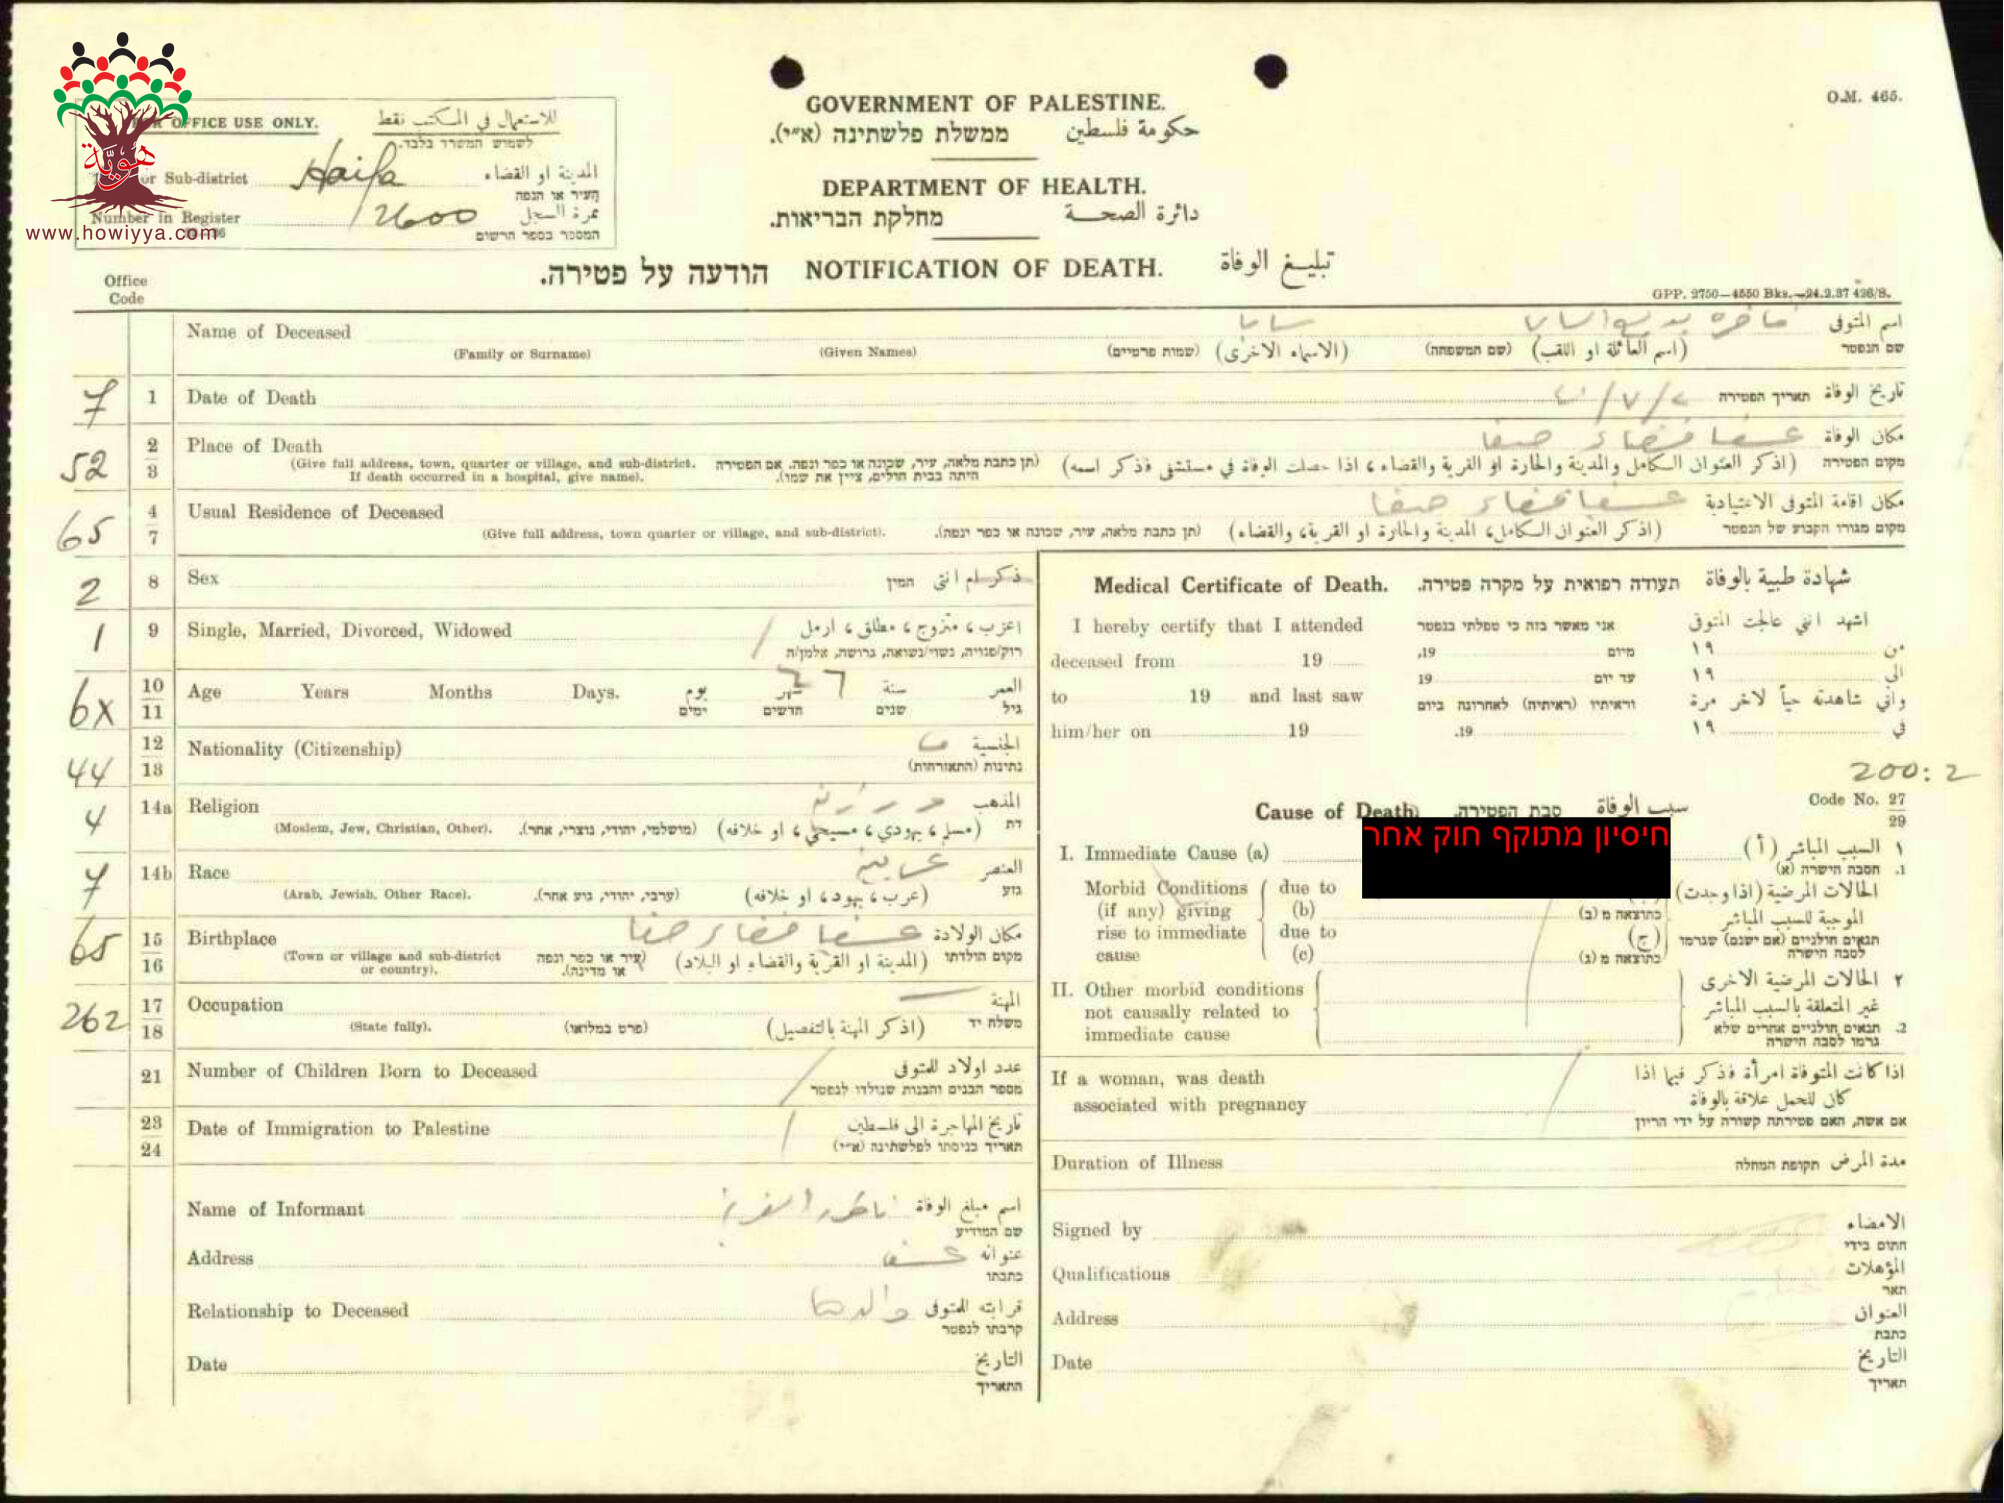 هوية
www.howiyya.com
FOR OFFICE USE ONLY. للاستعمال في المكتب فقط
לשמוש המשרד בלבד.
or Sub-district Haifa المدينة او القضاء
העיר או הנפה
Number in Register 2600 نمرة السجل
המספר בספר הרשום
O.M. 465.
GOVERNMENT OF PALESTINE.
ממשלת פלשתינה (א״י). حكومة فلسطين
DEPARTMENT OF HEALTH.
מחלקת הבריאות. دائرة الصحة
הודעה על פטירה. NOTIFICATION OF DEATH. تبليغ الوفاة
GPP. 2750—4550 Bks.—24.2.37 426/S.
Office
Code
Name of Deceased سابا بديع السابا اسم المتوفى
(Family or Surname) (Given Names) (שמות פרטיים) (الاسماء الاخرى) (שם המשפחה) (اسم العائلة او اللقب) שם הנפטר
7 1 Date of Death תאריך הפטירה تاريخ الوفاة
52 2 3 Place of Death عسفيا قضاء حيفا مكان الوفاة
(Give full address, town, quarter or village, and sub-district. If death occurred in a hospital, give name). (תן כתבת מלאה, עיר, שכונה או כפר ונפה. אם הפטירה היתה בבית חולים, ציין את שמו). (اذكر العنوان الكامل والمدينة والحارة او القرية والقضاء، اذا حصلت الوفاة في مستشفى فذكر اسمه) מקום הפטירה
65 4 7 Usual Residence of Deceased عسفيا قضاء حيفا مكان اقامة المتوفى الاعتيادية
(Give full address, town quarter or village, and sub-district). (תן כתבת מלאה, עיר, שכונה או כפר ונפה). (اذكر العنوان الكامل، المدينة والحارة او القرية، والقضاء) מקום מגורו הקבוע של הנפטר
2 8 Sex המין ذكر ام انثى
1 9 Single, Married, Divorced, Widowed اعزب، متزوج، مطلق، ارمل
רוק/פנויה, נשוי/נשואה, גרושה, אלמן/ה
6X 10 11 Age Years Months Days. يوم شهر سنة العمر
ימים חדשים שנים גיל
44 12 13 Nationality (Citizenship) ف الجنسية
נתינות (התאזרחות)
4 14a Religion درزية المذهب
(Moslem, Jew, Christian, Other). (מושלמי, יהודי, נוצרי, אחר). (مسلم، يهودي، مسيحي، او خلافه) דת
7 14b Race عربية العنصر
(Arab, Jewish, Other Race). (ערבי, יהודי, גזע אחר). (عرب، يهود، او خلافه) גזע
65 15 16 Birthplace عسفيا قضاء حيفا مكان الولادة
(Town or village and sub-district or country). (עיר או כפר ונפה או מדינה). (المدينة او القرية والقضاء او البلاد) מקום הולדתו
262 17 18 Occupation المهنة
(State fully). (פרט במלואו) (اذكر المهنة بالتفصيل) משלח יד
21 Number of Children Born to Deceased عدد اولاد المتوفى
מספר הבנים והבנות שנולדו לנפטר
23 24 Date of Immigration to Palestine تاريخ المهاجرة الى فلسطين
תאריך כניסתו לפלשתינה (א״י)
Name of Informant اسم مبلغ الوفاة
שם המודיע
Address عنوانه
כתבתו
Relationship to Deceased والدها قرابته للمتوفى
קרבתו לנפטר
Date التاريخ
התאריך
Medical Certificate of Death. תעודה רפואית על מקרה פטירה. شهادة طبية بالوفاة
I hereby certify that I attended אני מאשר בזה כי טפלתי בנפטר اشهد انني عالجت المتوفى
deceased from 19 מיום 19, من ١٩
to 19 and last saw עד יום 19 الى ١٩
וראיתיו (ראיתיה) לאחרונה ביום واني شاهدته حياً لاخر مرة
him/her on 19 19. في ١٩
200:2
Cause of Death סבת הפטירה. سبب الوفاة Code No. 27 29
חיסיון מתוקף חוק אחר
I. Immediate Cause (a) ١ السبب المباشر (أ)
1. הסבה הישרה (א)
Morbid Conditions (if any) giving rise to immediate cause
due to (b) כתוצאה מ (ב)
due to (c) (ج) כתוצאה מ (ג)
الحالات المرضية (اذا وجدت) الموجبة للسبب المباشر
תנאים חולניים (אם ישנם) שגרמו לסבה הישרה
II. Other morbid conditions not causally related to immediate cause
٢ الحالات المرضية الاخرى غير المتعلقة بالسبب المباشر
2. תנאים חולניים אחרים שלא גרמו לסבה הישרה
If a woman, was death associated with pregnancy
اذا كانت المتوفاة امرأة فذكر فيما اذا كان للحمل علاقة بالوفاة
אם אשה, האם פטירתה קשורה על ידי הריון
Duration of Illness תקופת המחלה مدة المرض
Signed by الامضاء
חתום בידי
Qualifications المؤهلات
תאר
Address العنوان
כתבת
Date التاريخ
תאריך